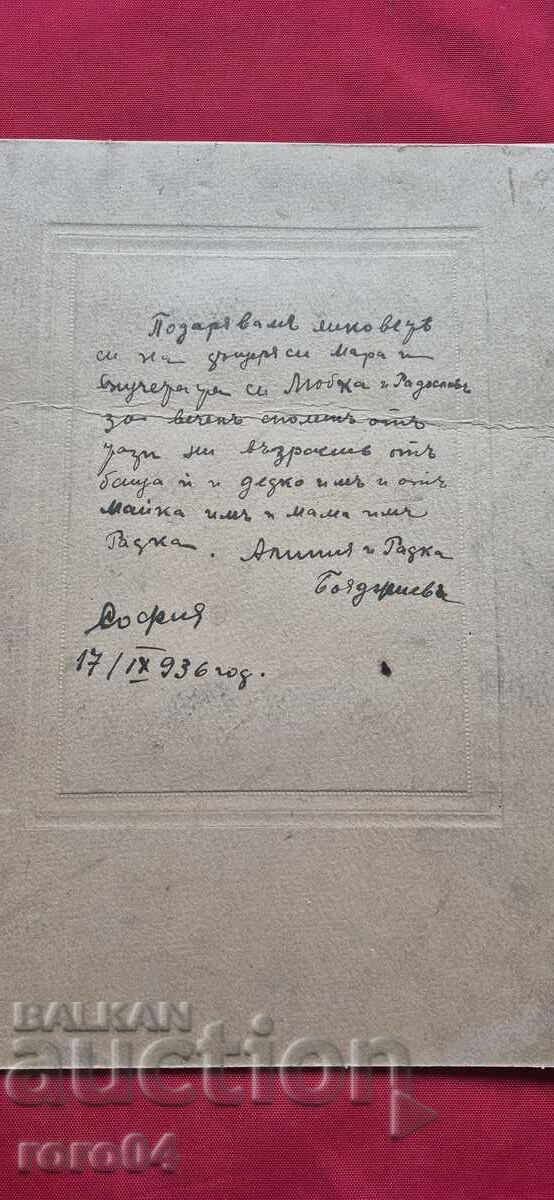 Подарявамъ ликоветѣ
си на дъщеря си Мара и
внучетата си Любка и Радославъ
за вечен споменъ отъ
ни възрастъ отъ
баща ѝ и дедко имъ и отъ
майка имъ и мама имъ
Радка. Апития и Радка
Бояджиеви
София
17/IX 936 год.
BALKAN
auction
roro04